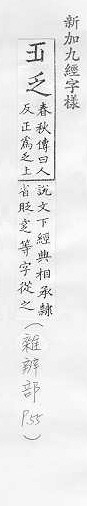 新加九經字樣
乏
春秋傳曰人
反正為乏上
說文下經典相承隸
省貶芝等字從之
(雜辨部 P.55)